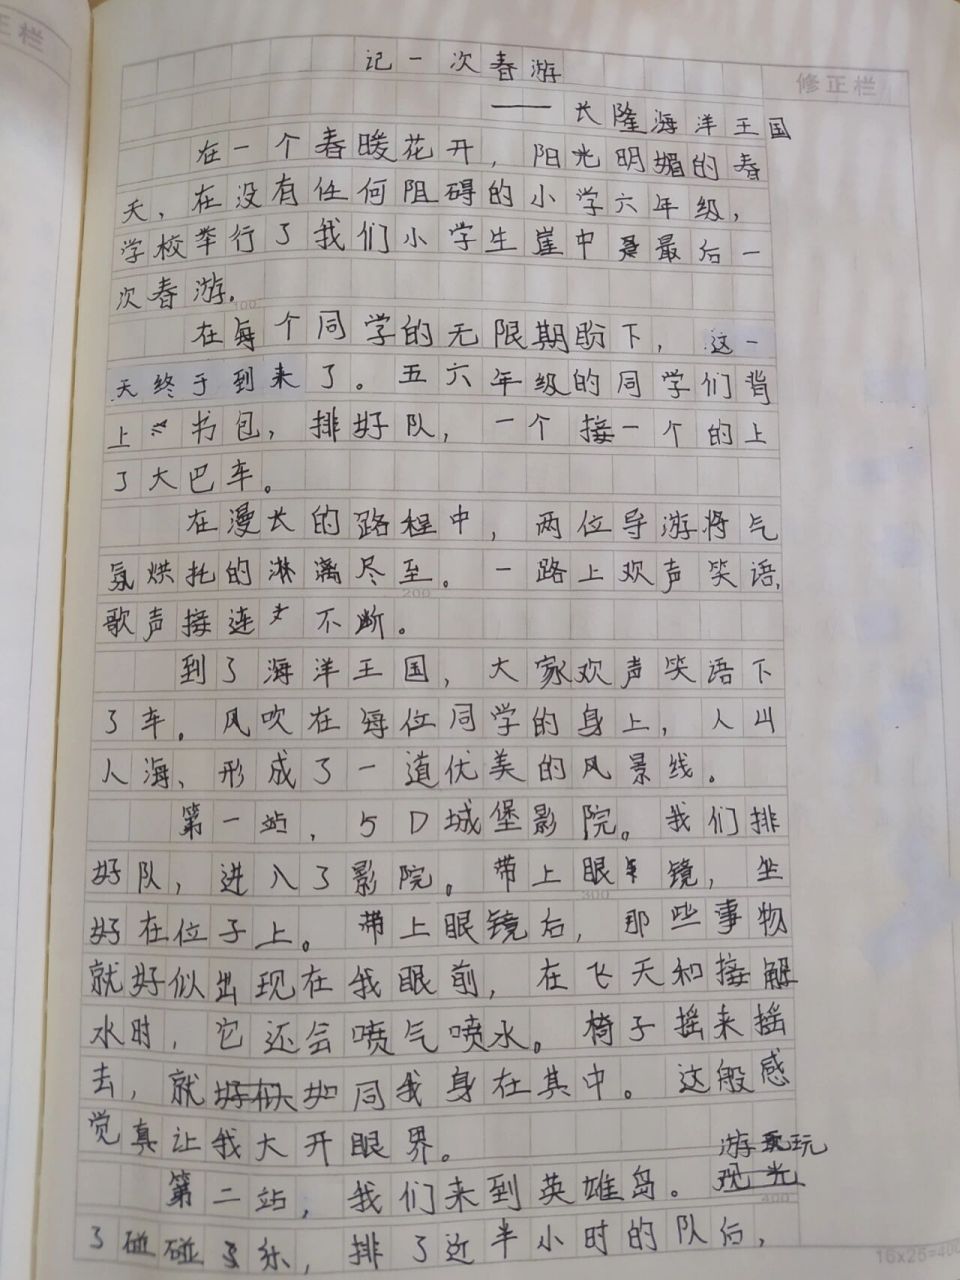 正栏
修正栏
记一次春游
——长隆海洋王国
在一个春暖花开，阳光明媚的春
天，在没有任何阻碍的小学六年级，
学校举行了我们小学生崖中最后一
次春游。
100
在每个同学的无限期盼下，这一
天终于到来了。五六年级的同学们背
上书包，排好队，一个接一个的上
了大巴车。
在漫长的路程中，两位导游将气
氛烘托的淋漓尽至。一路上欢声笑语，
200
歌声接连不断。
到了海洋王国，大家欢声笑语下
了车。风吹在每位同学的身上，人山
人海、形成了一道优美的风景线。
第一站，5D城堡影院。我们排
好队，进入了影院。带上眼镜，坐
300
好在位子上。带上眼镜后，那些事物
就好似出现在我眼前，在飞天和接解
水时，它还会喷气喷水。椅子摇来摇
去，就如同我身在其中。这般感
觉真让我大开眼界。
第二站，我们来到英雄岛。游玩
400
了碰碰乐，排了近半小时的队后，
16x25=400